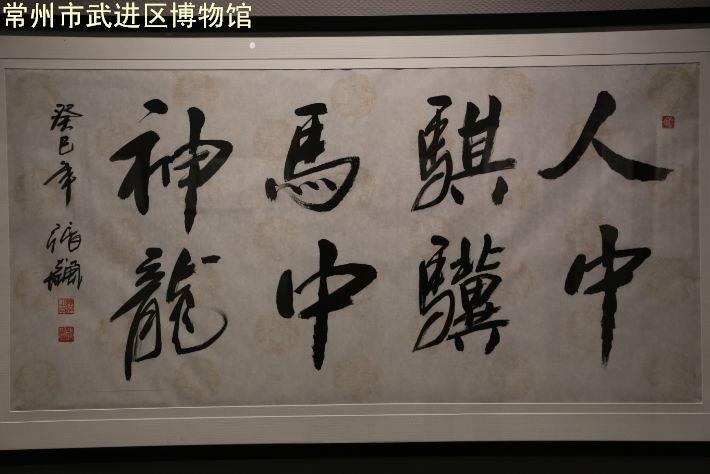 常州市武进区博物馆
人中
骐骥
馬中
神龍
癸巳年